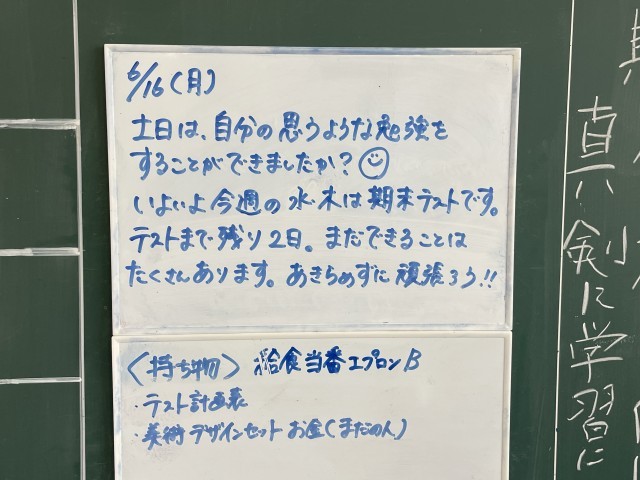 6/16(月)
土日は、自分の思うような勉強を
することができましたか?☺
いよいよ今週の水・木は期末テストです。
テストまで残り2日。まだできることは
たくさんあります。あきらめずに頑張ろう!!
〈持ち物〉 給食当番エプロンB
・テスト計画表
・美術デザインセットお金(まだの人)
真剣に学習に